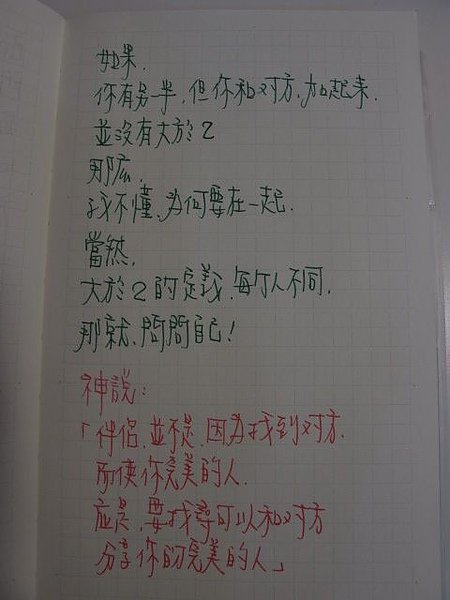 如果.
你有另一半,但你和对方.加起来.
並沒有大於2
那広.
我不懂.為何要在一起.
當然.
大於2的定義.每个人不同.
那就.問問自己!
神說:
「伴侶.並不是.因為找到对方.
所使你完美的人.
應是.要找尋可以和对方
分享你的完美的人」